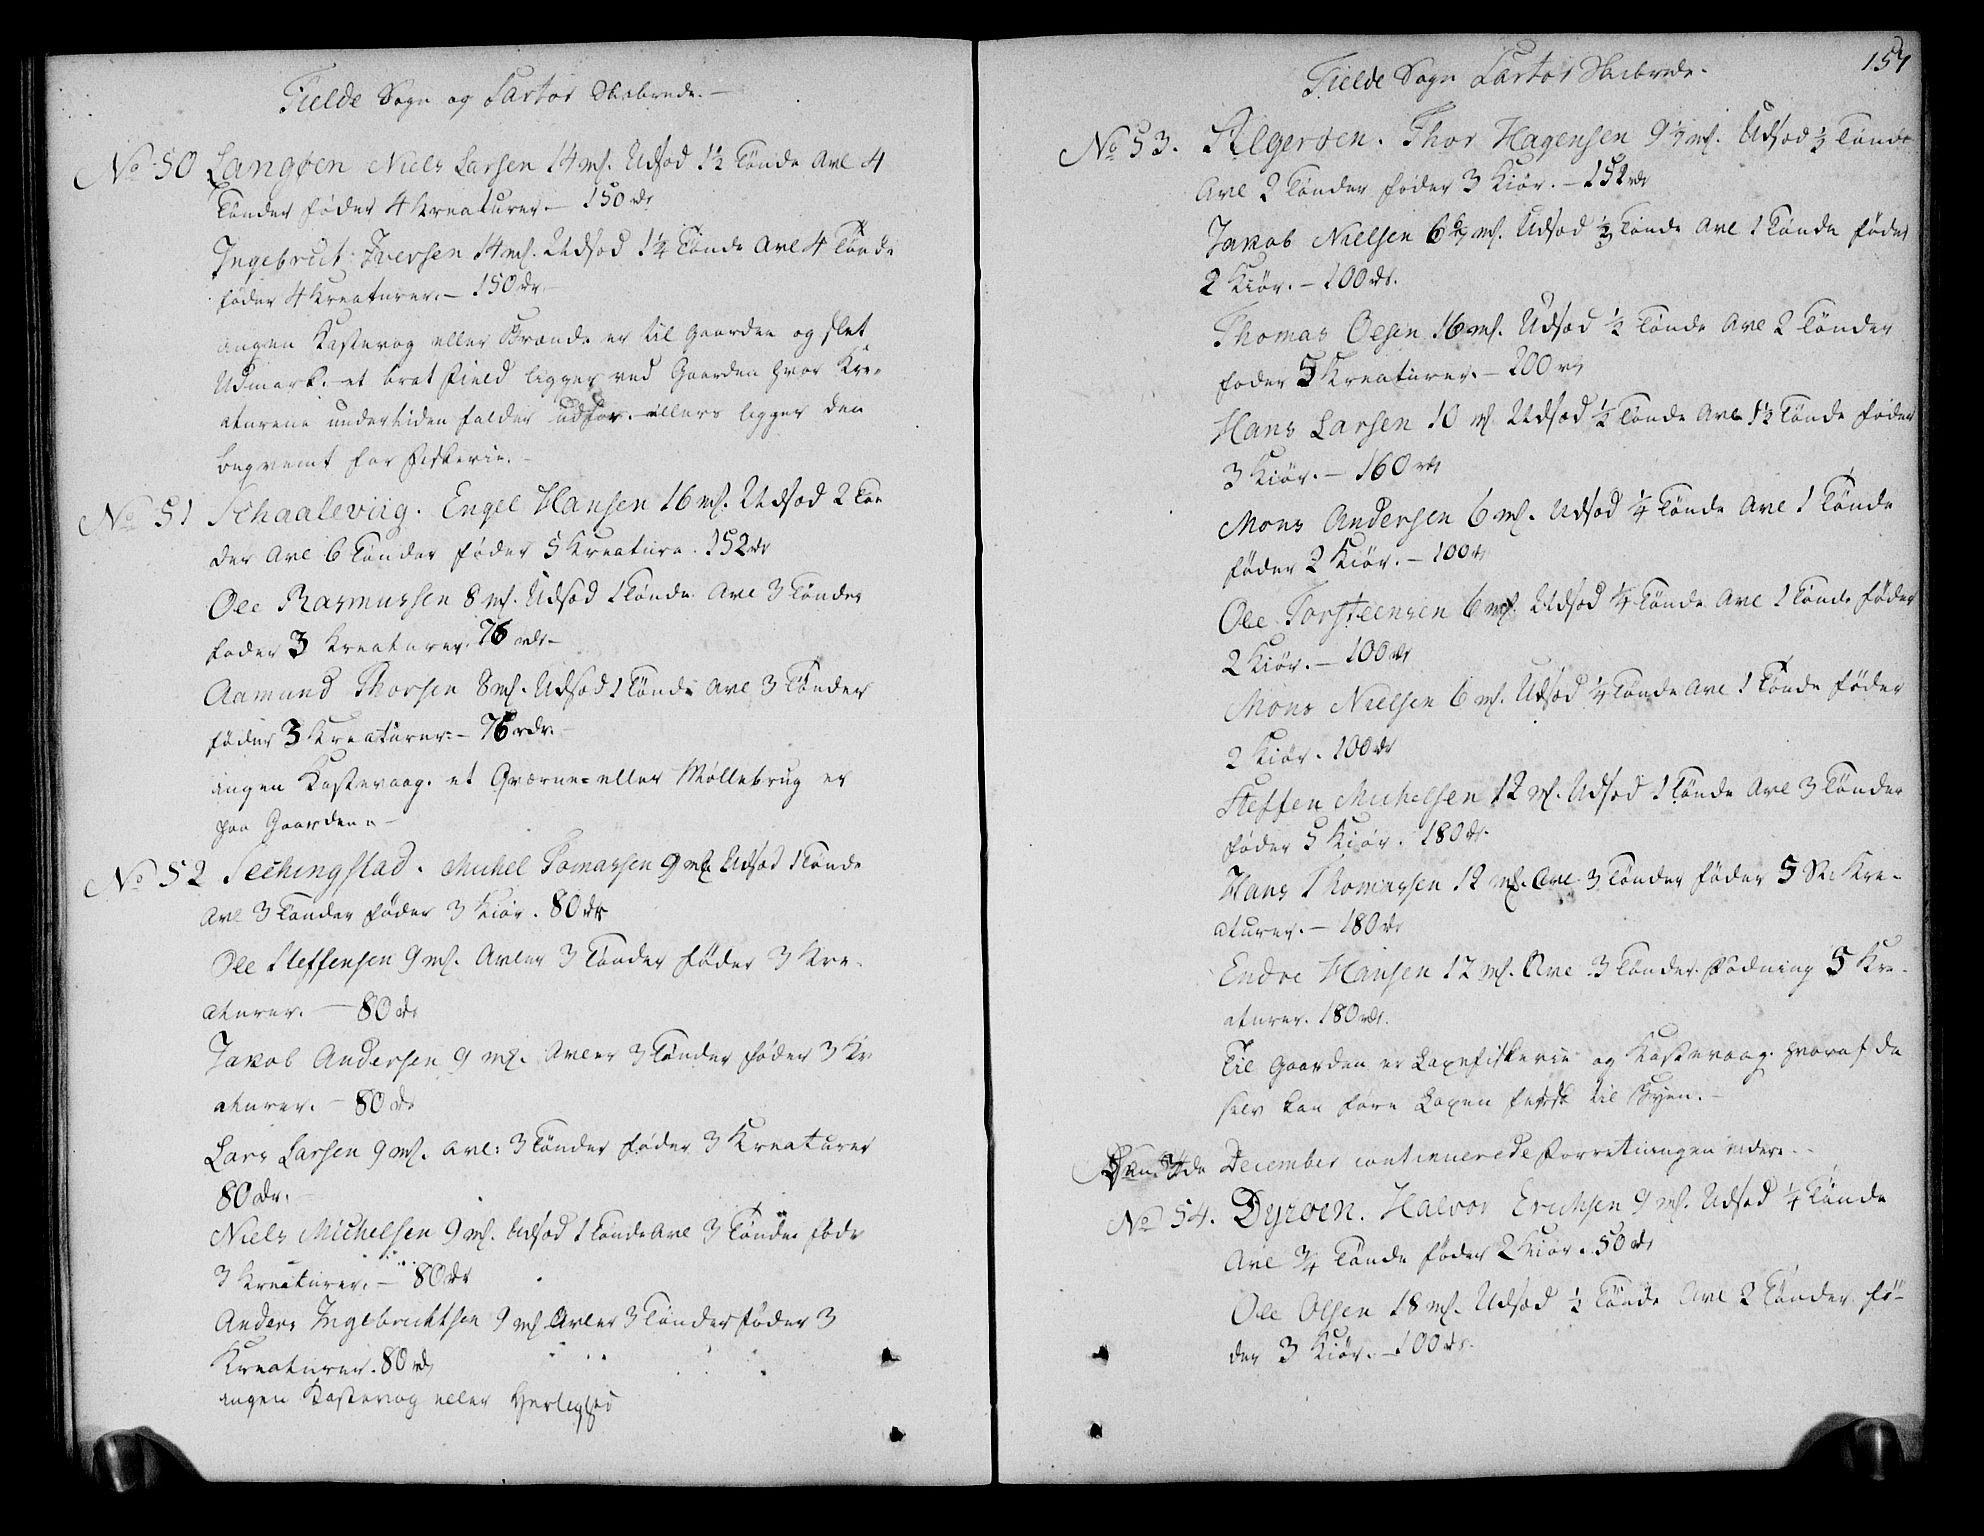 Fielde Sogn og Sartor Skibrede. —
No 50 Langøen Niels Larsen 14 mk. Udsæd 1½ Tønde Avl 4
Tønder føder 4 Kreaturer. — 150 rdr
Ingebrict Iversen 14 mk. Udsæd 1¼ Tønde Avl 4 Tønde
føder 4 Kreaturer. — 150 rdr
ingen Kastevog eller Brænde er til Gaarden og slet
Udmark. et brat Field ligger ved Gaarden hvor Kre-
aturene undertiden falder udfor. ellers ligger den
beqvemt for Fiskerie. —
No 51 Schaaleviig. Engel Hansen 16 mk. Udsæd 2 Tøn
der Avl 6 Tønder føder 5 Kreature. 152 rdr
Ole Rasmussen 8 mk. Udsæd 1 Tønde Avl 3 Tønder
føder 3 Kreaturer. 76 rdr —
Aamund Thorsen 8 mk. Udsæd 1 Tønde Avl 3 Tønder
føder 3 Kreaturer. — 76 rdr.
ingen Kastevaag. et Qværne= eller Møllebrug er
paa Gaarden. —
No 52 Sechingstad. Michel Tomassen 9 mk Udsæd 1 Tønde
Avl 3 Tønder føder 3 Kiør. 80 rdr
Ole Steffensen 9 mk. Avler 3 Tønder føder 3 Kre-
aturer. — 80 rdr
Jakob Andersen 9 mk. Avler 3 Tønder føder 3 Kr
aturer. — 80 rdr
Lars Larsen 9 mk. avl: 3 Tønder føder 3 Kreaturer
80 rdr. —
Niels Michelsen 9 mk. Udsæd 1 Tønde Avl 3 Tønde føde
3 Kreaturer. — 80 rdr
Anders Ingebrichtsen 9 mk Avler 3 Tønder føder 3
Kreaturer. 80 rd
ingen Kastevog eller Herlighed
Fielde Sogn Sartor Skibrede.
No 53. Algerøen. Thor Hagensen 9½ mk. Udsæd ½ Tønde
Avl 2 Tønder føder 3 Kiør. — 152 rdr
Jakob Nielsen 6 mk. Udsæd ½ Tønde Avl 1 Tønde føder
2 Kiør. — 100 rdr.
Thomas Olsen 16 mk. Udsæd ½ Tønde Avl 2 Tønder
føder 5 Kreaturer. — 200 rd
Hans Larsen 10 mk Udsæd ½ Tønde Avl 1½ Tønde føder
3 Kiør. — 160 rdr
Mons Andersen 6 mk. Udsæd ¼ Tønde Avl 1 Tønde
føder 2 Kiør. — 100 rdr
Ole Torsteensen 6 mk. Udsæd ¼ Tønde Avl 1 Tønde føder
2 Kiør. — 100 rdr
Mons Nielsen 6 mk. Udsæd ¼ Tønde Avl 1 Tønde føder
2 Kiør. 100 rdr
Steffen Michelsen 12 mk. Udsæd 1 Tønde Avl 3 Tønder
føder 5 Kiør. 180 rdr.
Hans Thomassen 12 mk. Avl 3 Tønder føder 5 St: Kre-
aturer. — 180 rdr
Endre Hansen 12 mk. Avl 3 Tønder. Fødning 5 Kre-
aturer. 180 rdr.
Til Gaarden er Laxefiskerie og Kastevaag. hvoraf de
selv kan føre Laxen fersk til Byen. —
December continuerede Forretningen videre. -
No 54. Dyrøen. Halvor Erichsen 9 mk. Udsæd ¼ Tønde
Avl ¾ Tønde føder 2 Kiør. 50 rdr
Ole Olsen 18 mk. Udsæd ½ Tønde Avl 2 Tønder. fø-
der 3 Kiør. — 100 rdr.